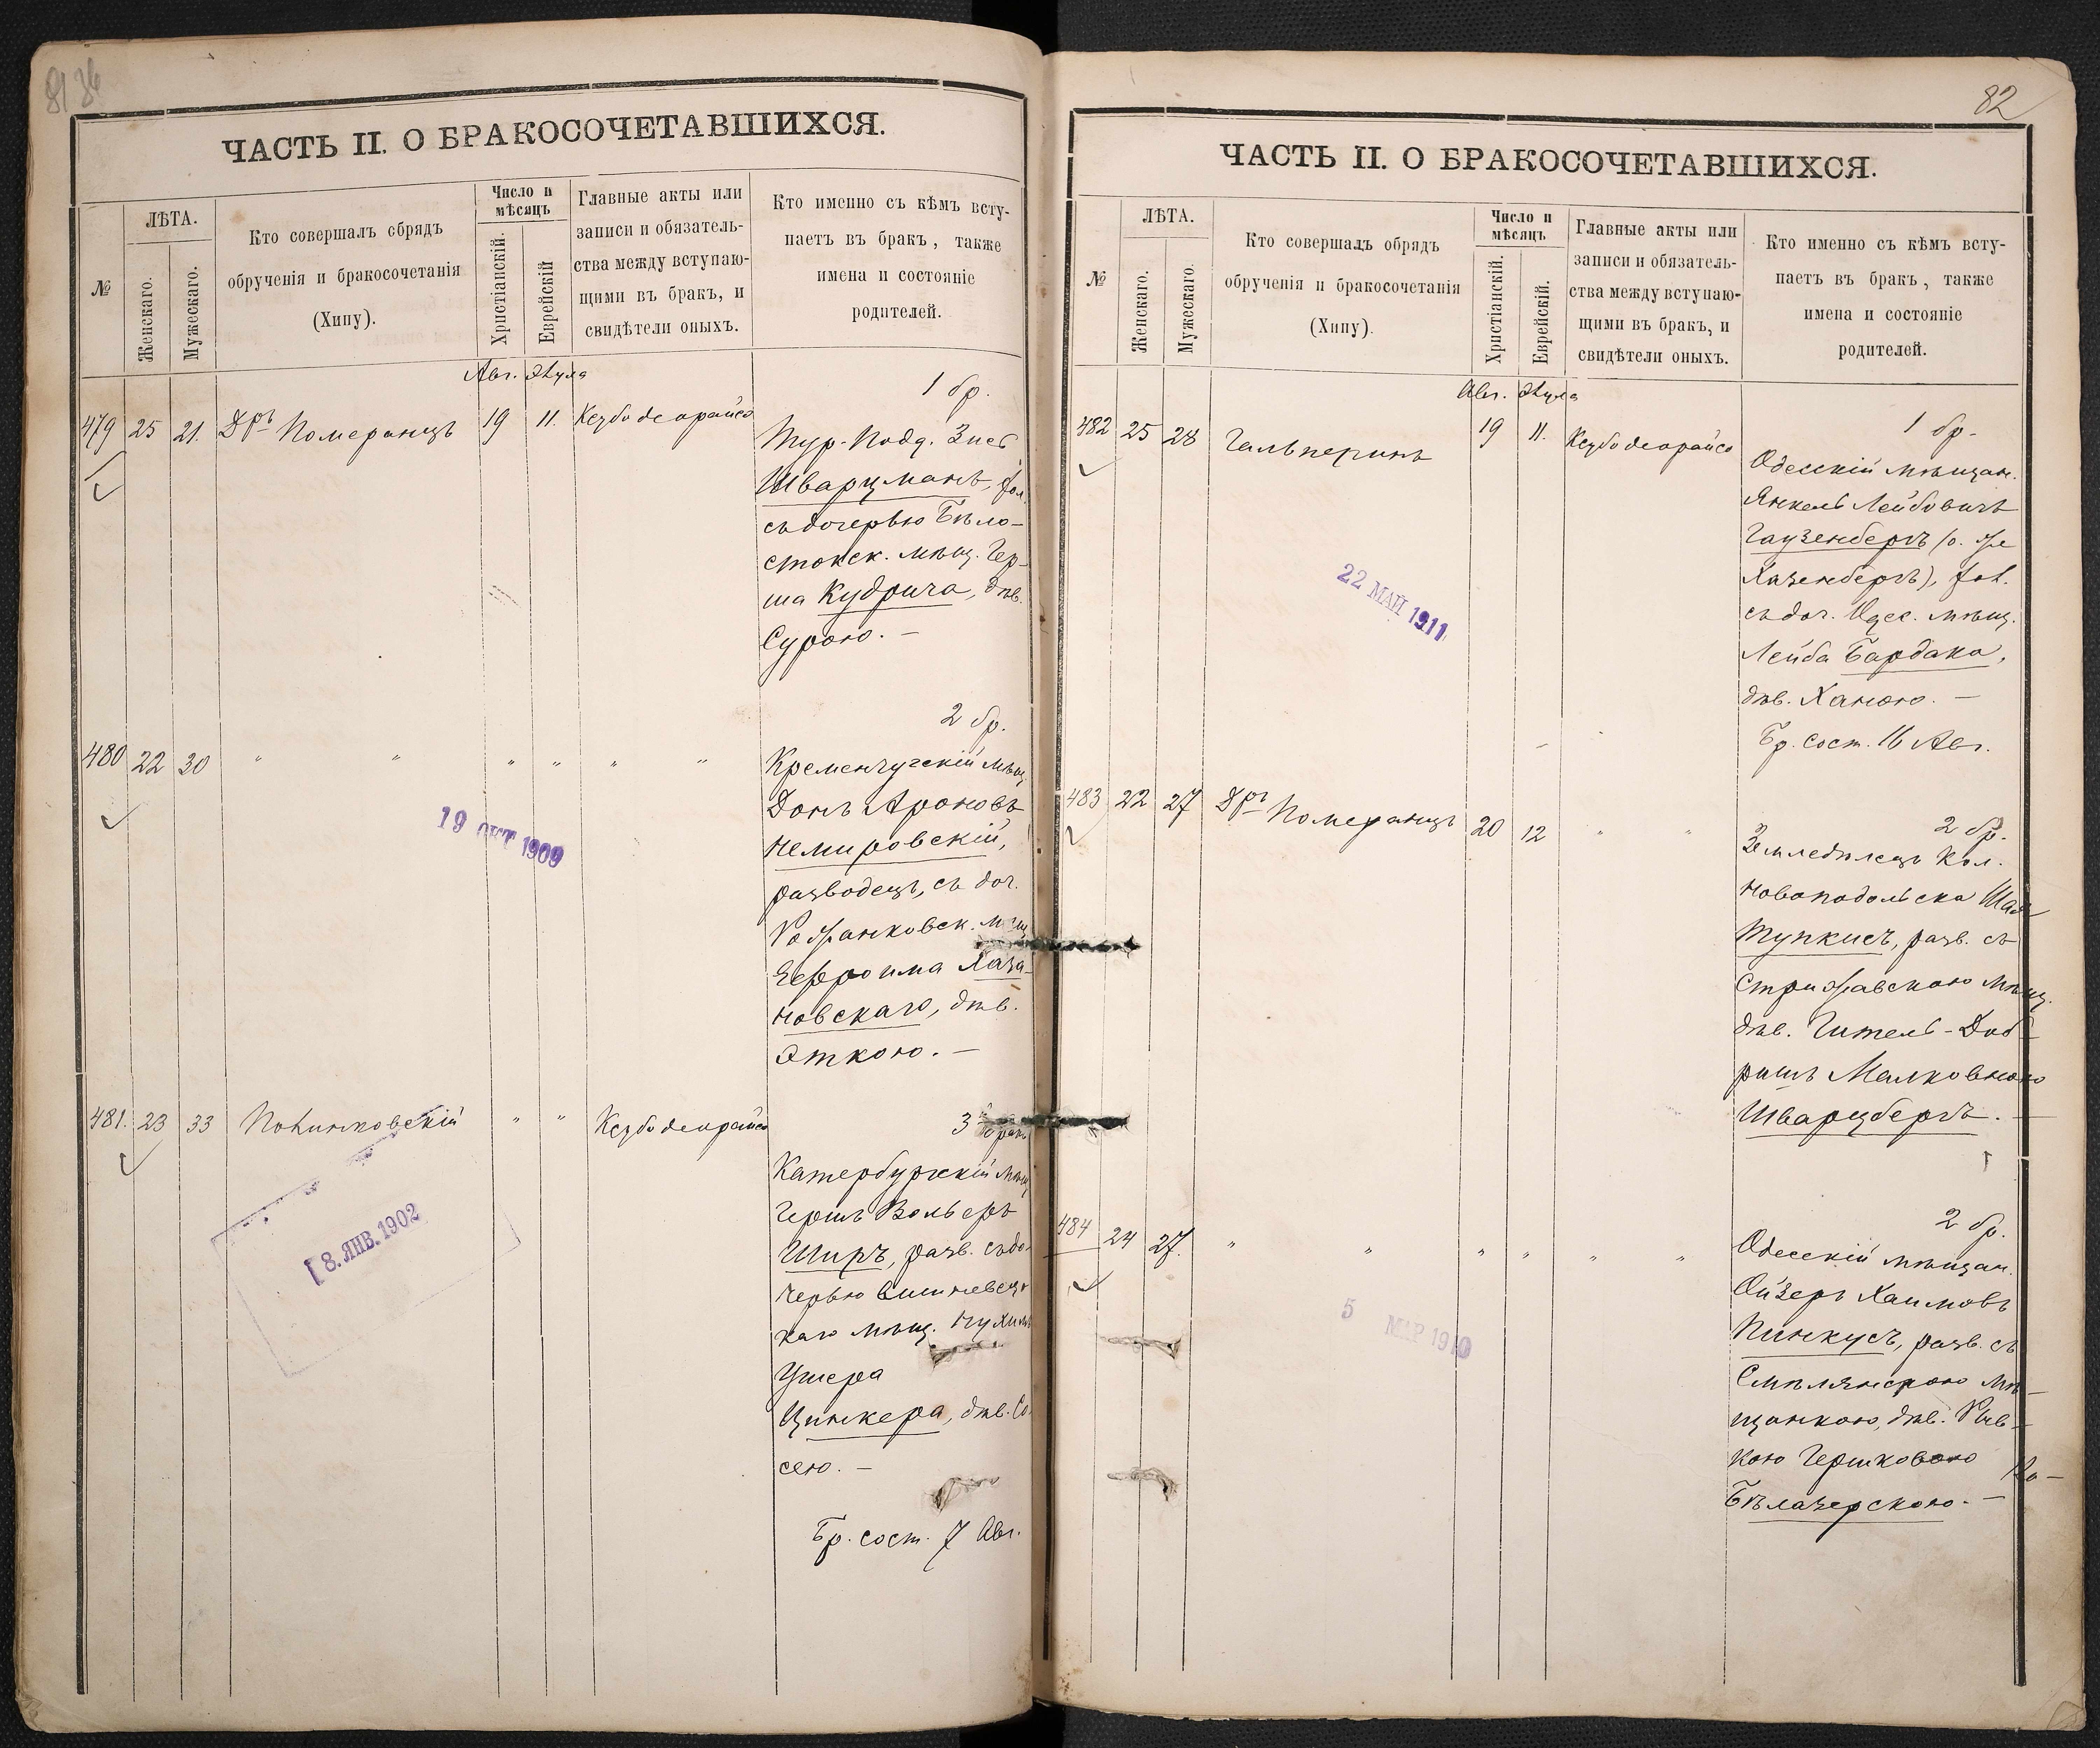 81 36
ЧАСТЬ II. О БРАКОСОЧЕТАВШИХСЯ.
№
ЛѢТА.
Женскаго.
Мужескаго.
Кто совершалъ обрядъ
обрученія и бракосочетанія
(Хипу).
Число и
мѣсяцъ
Христіанскій.
Еврейскій
Главные акты или
записи и обязатель-
ства между вступаю-
щими въ бракъ, и
свидѣтели оныхъ.
Кто именно съ кѣмъ всту-
паетъ въ бракъ, также
имена и состояніе
родителей.
Авг. Элула
1 бр.
479 25 21. Дръ Померанцъ 19 11. Ксубо деорайсо
Тур. Подд. Зись
Шварцманъ, хол.
съ дочерью Бѣло-
стокск. мѣщ. Гер-
ша Кудрича, дѣв.
Сурою. —
2 бр.
480 22 30 " " " " " "
Кременчугскій мѣщ.
Донъ Ароновъ
Немировскій,
разводецъ, съ доч.
мѣщ
Ефроима Хаза-
новскаго, дѣв.
Эткою. —
19 ОКТ 1909
481. 23 33 " " Ксубо деорайсо
3
Катербургскій мѣщ
Гершъ Вольфъ
Ширъ, разв. съ до-
черью Вишневец-
каго мѣщ. Нухимъ
Ушера
Цинкера, дѣв. Со-
сею. —
Бр. сост. 7 Авг.
8. ЯНВ. 1902
82
ЧАСТЬ II. О БРАКОСОЧЕТАВШИХСЯ.
№
ЛѢТА.
Женскаго.
Мужескаго.
Кто совершалъ обрядъ
обрученія и бракосочетанія
(Хипу).
Число и
мѣсяцъ
Христіанскій.
Еврейскій.
Главные акты или
записи и обязатель-
ства между вступаю-
щими въ бракъ, и
свидѣтели оныхъ.
Кто именно съ кѣмъ всту-
паетъ въ бракъ, также
имена и состояніе
родителей.
Авг. Элула
1 бр.
482 25 28 Гальперинъ 19 11. Ксубо деорайсо
Одесскій мѣщан.
Янкель Лейбовичъ
Гаузенбергъ (о. же
Хазенбергъ), хол.
съ доч. Одес. мѣщ.
Лейба Бардака,
дѣв. Ханою. —
Бр. сост. 16 Авг.
22 МАЙ 1911
483 22 27 Дръ Померанцъ 20 12 " "
2 бр.
Земледѣлецъ кол.
Новоподольска
Тупкисъ, разв. съ
Стрижавскою мѣщ.
дѣв. Гитель-Доб-
ришъ Малковною
Шварцбергъ. —
484 24 27. " " " " " "
2 бр.
Одесскій мѣщан.
Ойзеръ Хаимовъ
Пинкусъ, разв. съ
Смѣлянскою мѣ-
щанкою, дѣв. Рив-
кою Гершковою
Бѣлазерскою. —
5 МАР 1910